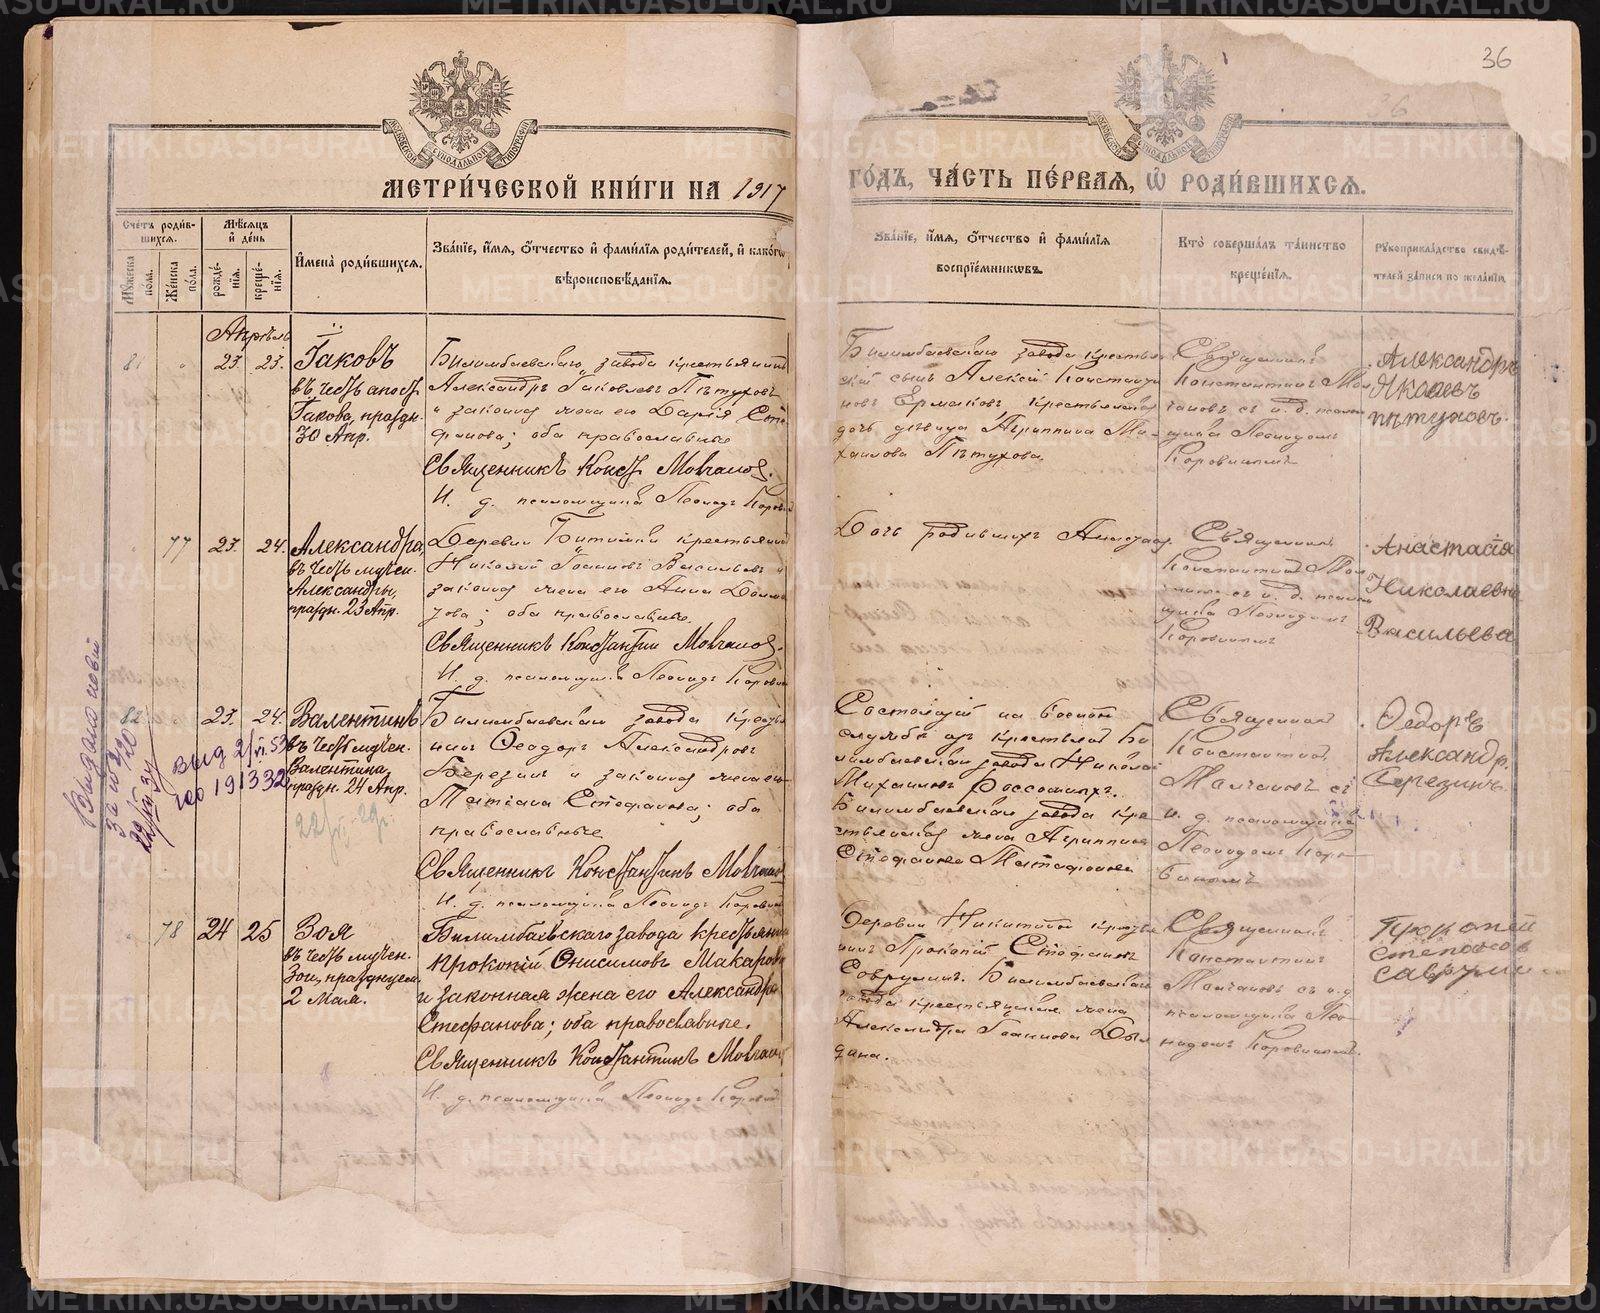 36
МЕТРИЧЕСКОЙ КНИГИ НА 1917
ГОДЪ, ЧАСТЬ ПЕРВАЯ, Ѡ РОДИВШИХСЯ.
Счетъ родившихся.
Мужеска пола.
Женска пола.
Мѣсяцъ и день
рожденія.
крещенія.
Имена родившихся.
Званіе, имя, отчество и фамилія родителей, и какого
вѣроисповѣданія.
Званіе, имя, отчество и фамилія
воспріемниковъ.
Кто совершалъ таинство
крещенія.
Рукоприкладство свидѣтелей записи по желанію.
Апрѣль
81 23. 23.
Іаковъ
въ честь апост.
Іакова, праздн.
30 Апр.
Билимбаевскаго завода крестьянинъ
Александръ Іаковлевъ Пѣтуховъ
и законная жена его Дарія Сте-
фанова; оба православные
Священникъ Конст. Молчановъ.
И. д. псаломщика Леонидъ Коровинъ
Билимбаевскаго завода крестьян-
скій сынъ Алексѣй Константи-
новъ Ермаковъ, крестьянская
дочь девица Агриппина Ми-
хаилова Пѣтухова
Священникъ
Константинъ Мол-
чановъ съ и. д. псалом-
щика Леонидомъ
Коровинымъ
Александръ
Яковлевъ
Пѣтуховъ.
77 23. 24.
Александра,
въ честь мучен.
Александры,
праздн. 23 Апр.
Деревни Битимки крестьянинъ
Николай Іоанновъ Васильевъ и
законная жена его Анна
оба православные.
Священникъ Константинъ Молчановъ.
И. д. псаломщика Леонидъ Коровинъ
Дочь родившихъ Анастасія
Священникъ
Константинъ Мол-
чановъ съ и. д. псалом-
щика Леонидомъ
Коровинымъ
Анастасія
Николаевна
Васильева
82 23. 24.
Валентинъ
въ честь мучен.
Валентина,
праздн. 24 Апр.
Билимбаевскаго завода кресть-
нинъ Ѳеодоръ Александровъ
Березинъ и законная жена его
Татіана Стефанова; оба
православные
Священникъ Константинъ Молчановъ
И. д. псаломщика Леонидъ Коровинъ
Состоящій на военной
службѣ изъ крестьянъ Би-
лимбаевскаго завода Николай
Михаиловъ Россомахъ.
Билимбаевскаго завода кре-
стьянская жена Агриппина
Стефанова
Священникъ
Константинъ
Молчановъ съ
и. д. псаломщика
Леонидомъ Коро-
винымъ
Ѳедоръ
Александр.
Березинъ.
78 24 25
Зоя
въ честь мучен.
Зои, празднуем.
2 Мая.
Билимбаевскаго завода крестьянинъ
Прокопій Онисимовъ Макаровъ
и законная жена его Александра
Стефанова; оба православные.
Священникъ Константинъ Молчановъ
И. д. псаломщика Леонидъ Коровинъ
Деревни Никитиной кресть-
нинъ Прокопій Стефановъ
Билимбаевскаго
завода крестьянская жена
Александра Іоаннова
Священникъ
Константинъ
Молчановъ съ и. д.
псаломщика Лео-
нидомъ Коровинымъ.
Прокопей
Степанов
METRIKI.GASO-URAL.RU